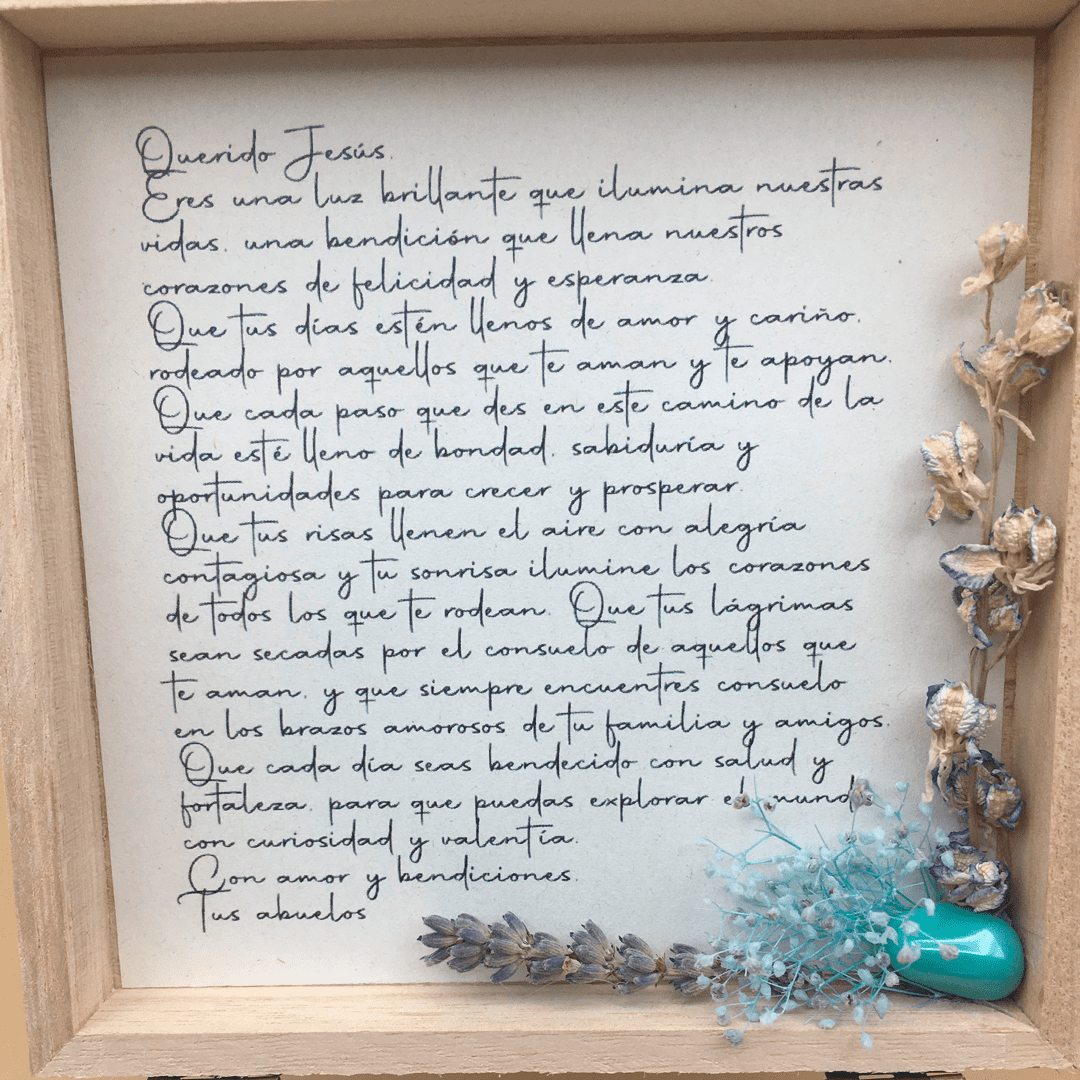 Querido Jesús,
Eres una luz brillante que ilumina nuestras
vidas, una bendición que llena nuestros
corazones de felicidad y esperanza.
Que tus días estén llenos de amor y cariño,
rodeado por aquellos que te aman y te apoyan.
Que cada paso que des en este camino de la
vida esté lleno de bondad, sabiduría y
oportunidades para crecer y prosperar.
Que tus risas llenen el aire con alegría
contagiosa y tu sonrisa ilumine los corazones
de todos los que te rodean. Que tus lágrimas
sean secadas por el consuelo de aquellos que
te aman, y que siempre encuentres consuelo
en los brazos amorosos de tu familia y amigos.
Que cada día seas bendecido con salud y
fortaleza, para que puedas explorar el mundo
con curiosidad y valentía.
Con amor y bendiciones,
Tus abuelos